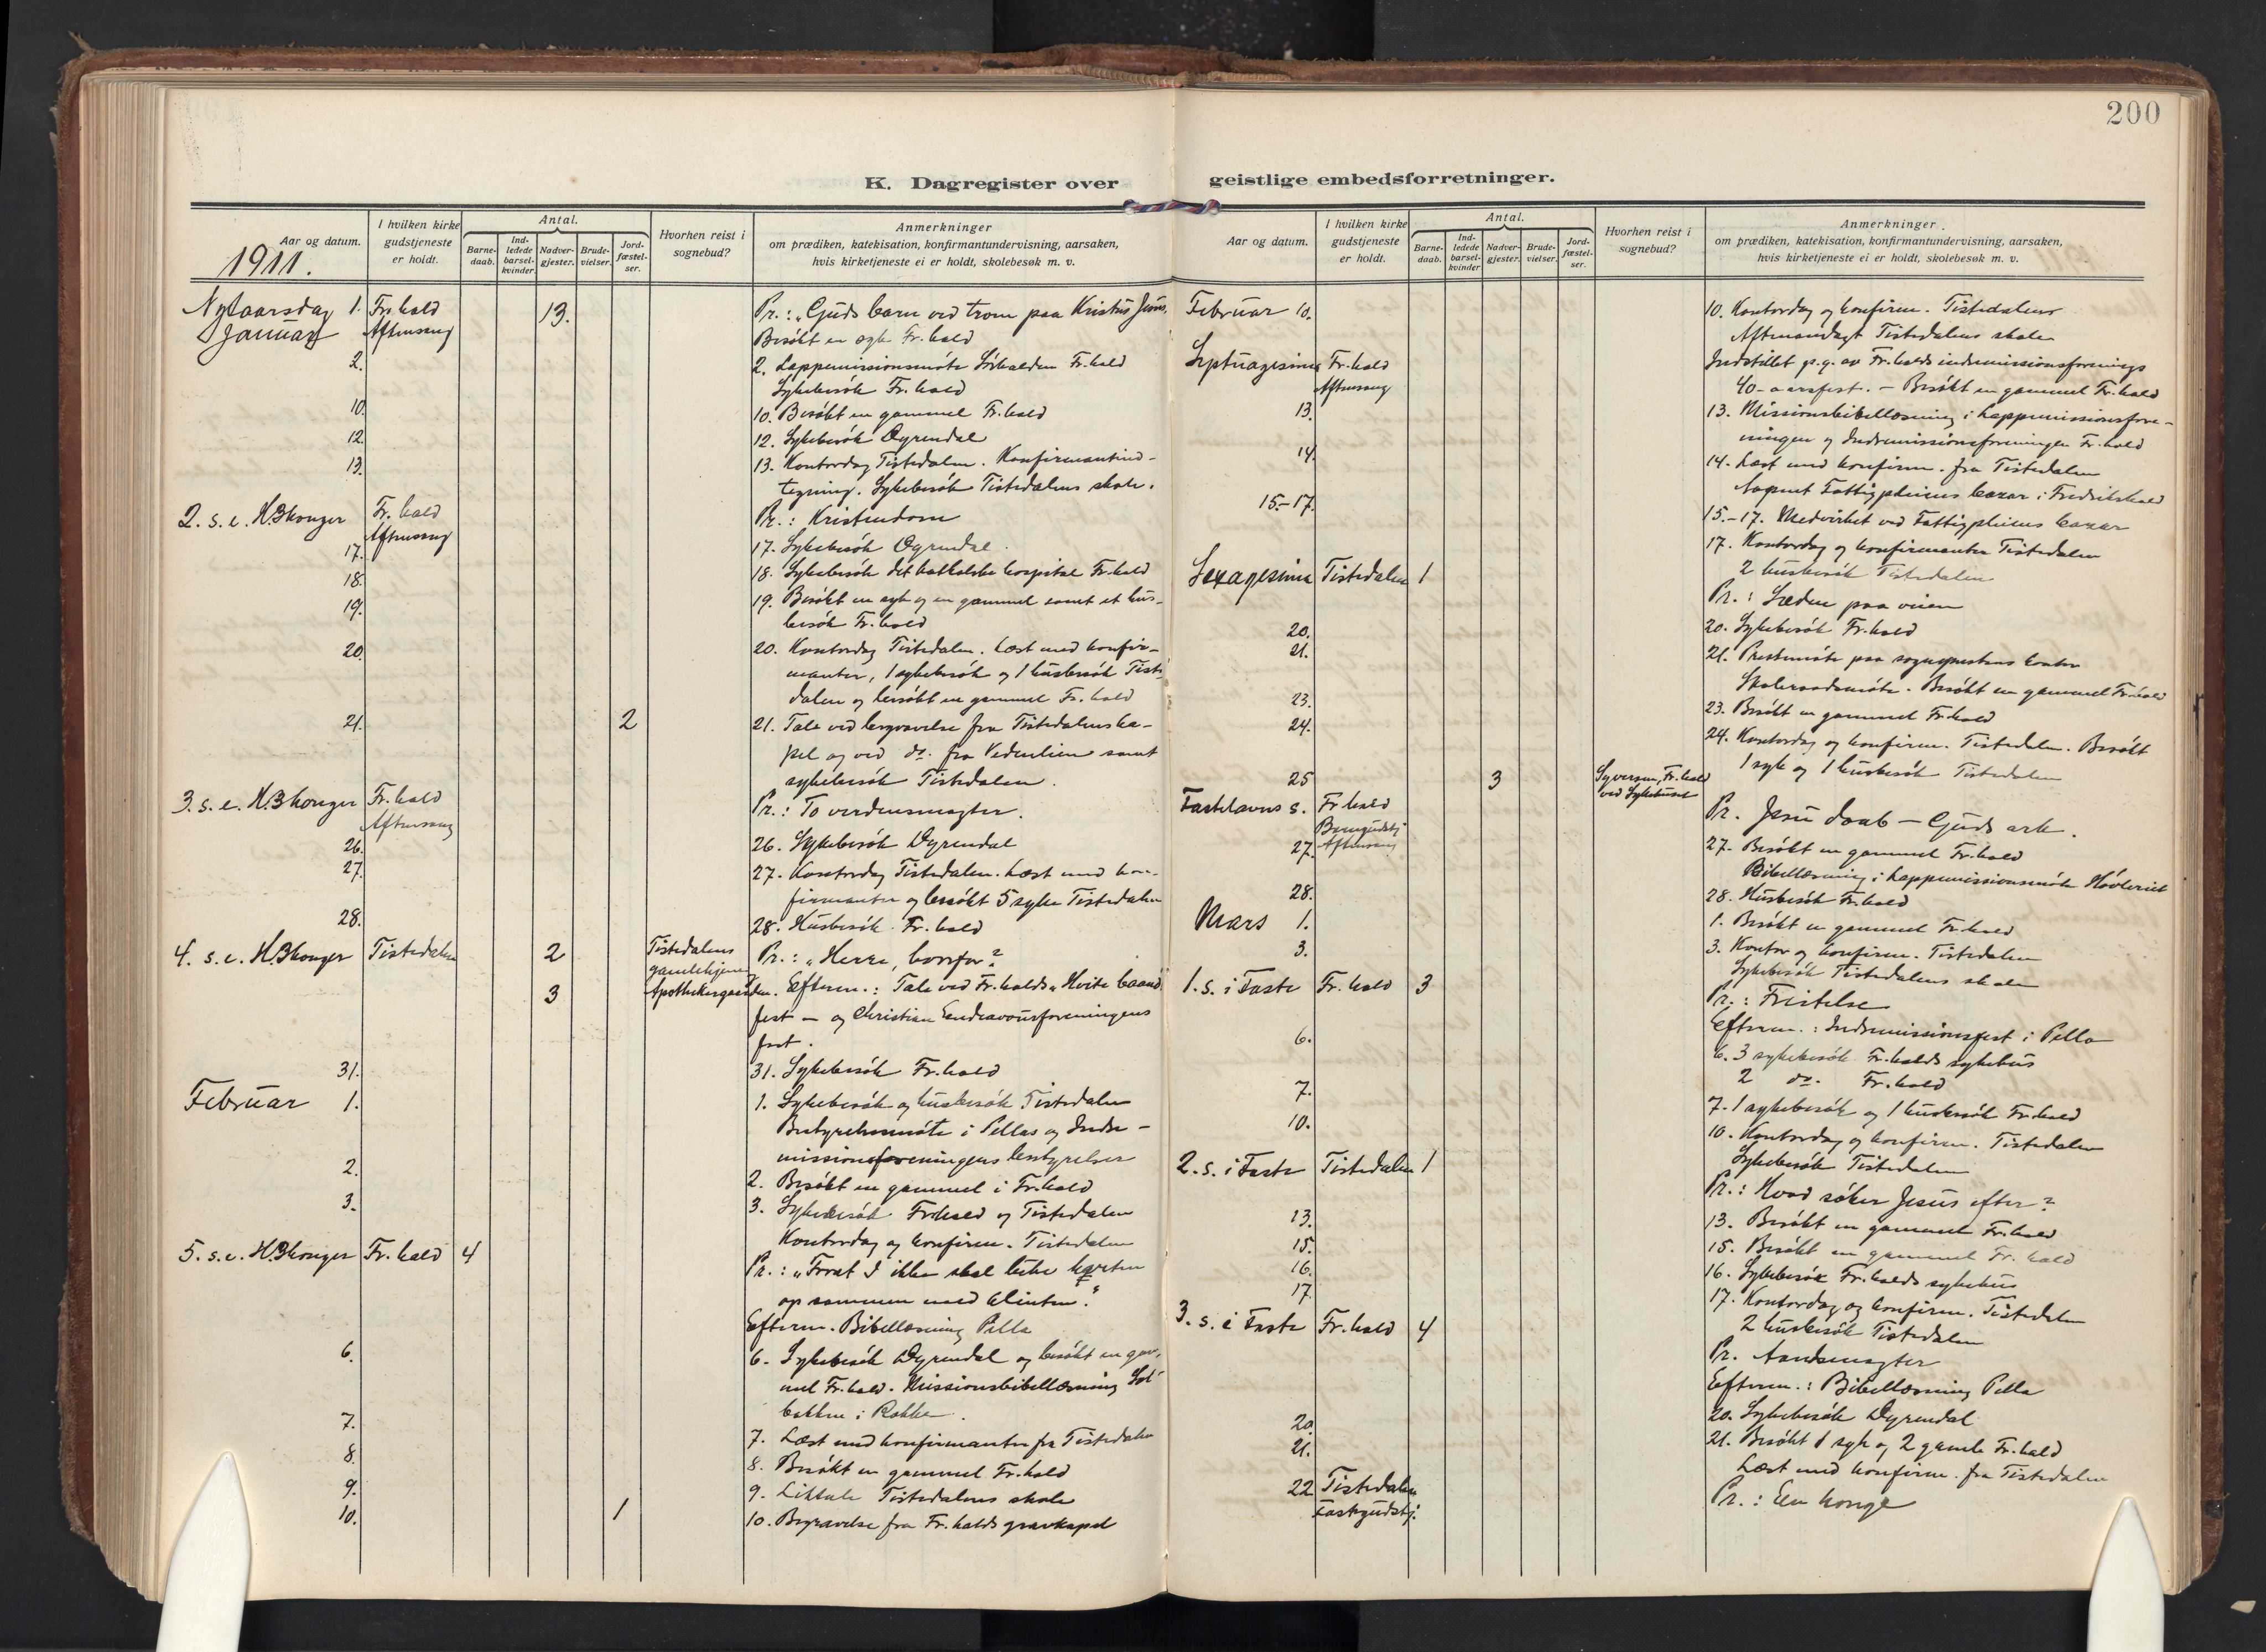 200
K. Dagregister over geistlige embedsforretninger.
Aar og datum.
1911.
I hvilken kirke gudstjeneste er holdt.
Antal.
Barne-daab.
Ind-ledede barsel-kvinder.
Nadver-gjester.
Brude-vielser.
Jord-fæstel-ser.
Hvorhen reist i sognebud?
Anmerkninger
om prædiken, katekisation, konfirmantundervisning, aarsaken,
hvis kirketjeneste ei er holdt, skolebesøk m. v.
Nytaarsdag 1. Fr.hald 13. Pr.: "Guds barn ved troen paa Kristus Jesus.
Januar Aftensang Besökt en syk Fr.hald
2. 2. Lappemissionsmöte Fr.hald
Sykebesök Fr.hald
10. 10. Besökt en gammel Fr.hald
12. 12. Sykebesök Dyrendal
13. 13. Kontordag Tistedalen. Konfirmantind-
tegning. Sykebesök Tistedalens skole.
2. s. e. H.3konger Fr.hald Pr.: Kristendom
Aftensang
17. 17. Sykebesök Dyrendal
18. 18. Sykebesök det katholske hospital Fr.hald
19. 19. Besökt en syk og en gammel samt et hus-
besök Fr.hald
20. 20. Kontordag Tistedalen. Læst med konfir-
manter, 1 sykebesök og 1 husbesök Tiste-
dalen og besökt en gammel Fr.hald
21. 2 21. Tale ved begravelse fra Tistedalens ka-
pel og ved do. fra Vedenlien samt
sykebesök Tistedalen.
3. s. e. H.3konger Fr.hald Pr.: To verdensmagter.
Aftensang
26. 26. Sykebesök Dyrendal
27. 27. Kontordag Tistedalen. Læst med kon-
firmanter og besökt 5 syke Tistedalen
28. 28. Husbesök Fr.hald
4. s. e. H.3konger Tistedalen 2 Tistedalens gamlehjem Pr.: "Herre, hvorfor?
3 Apothekergaarden. Efterm.: Tale ved Fr.halds "Hvite baand"
fest - og Christian Endeavourforeningens
fest.
31. 31. Sykebesök Fr.hald
Februar 1. 1. Sykebesök og husbesök Tistedalen
Bestyrelsesmöte i Pellas og Indre-
missionsforeningens bestyrelser
2. 2. Besökt en gammel i Fr.hald
3. 3. Sykebesök Fr.hald og Tistedalen
Kontordag og konfirm. Tistedalen
5. s. e. H.3konger Fr.hald 4 Pr.: "Forat I ikke skal rykke hveten
op sammen med klinten."
Efterm. Bibellæsning Pella
6. 6. Sykebesök Dyrendal og besökt en gam-
mel Fr.hald. Missionsbibellæsning Sol-
bakken i Rokke.
7. 7. Læst med konfirmanter fra Tistedalen
8. 8. Besökt en gammel Fr.hald
9. 9. Liktale Tistedalens skole
10. 1 10. Begravelse fra Fr.halds gravkapel
Aar og datum.
I hvilken kirke gudstjeneste er holdt.
Antal.
Barne-daab.
Ind-ledede barsel-kvinder
Nadver-gjester.
Brude-vielser.
Jord-fæstel-ser.
Hvorhen reist i sognebud?
Anmerkninger.
om prædiken, katekisation, konfirmantundervisning, aarsaken,
hvis kirketjeneste ei er holdt, skolebesøk m. v.
Februar 10. 10. Kontordag og konfirm. Tistedalens
Aftenandagt Tistedalens skole
Septuagesima Fr.hald Indstillet p.g. av Fr.halds indremissionsforenings
Aftensang 40-aarsfest. - Besökt en gammel Fr.hald
13. 13. Missionsbibellæsning i Lappemissionsfore-
ningen og Indremissionsforeningen Fr.hald
14. 14. Læst med konfirm. fra Tistedalen
Aapnet Fattigpleiens bazar i Fredrikshald
15.-17. 15.-17. Medvirket ved Fattigpleiens bazar
17. Kontordag og konfirmanter Tistedalen
2 husbesök Tistedalen
Sexagesima Tistedalen 1 Pr.: Sæden paa veien
20. 20. Sykebesök Fr.hald
21. 21. Prestemöte paa sogneprestens kontor
Skoleraadsmöte. Besökt en gammel Fr.hald
23. 23. Besökt en gammel Fr.hald
24. 24. Kontordag og konfirm. Tistedalen. Besökt
1 syk og 1 husbesök Tistedalen
25 3 Syversen, Fr.hald
ved Sykehuset
Fastelavns s. Fr.hald Pr. Jesu daab - Guds ark.
Barnegudstj.
Aftensang
27. 27. Besökt en gammel Fr.hald
Bibellæsning i Lappemissionsmöte
28. 28. Husbesök Fr.hald
Mars 1. 1. Besökt en gammel Fr.hald
3. 3. Kontor og konfirm. Tistedalen
Sykebesök Tistedalens skole
1. s. i Faste Fr.hald 3 Pr.: Fristelse
Efterm.: Indremissionsfest i Pella
6. 6. 3 sykebesök Fr.halds sykehus
2 do. Fr.hald
7. 7. 1 sykebesök og 1 husbesök Fr.hald
10. 10. Kontordag og konfirm. Tistedalen
Sykebesök Tistedalen
2. s. i Faste Tistedalen 1 Pr.: Hvad söker Jesus efter?
13. 13. Besökt en gammel Fr.hald
15. 15. Besökt en gammel Fr.hald
16. 16. Sykebesök Fr.halds sykehus
17. 17. Kontordag og konfirm. Tistedalen
2 husbesök Tistedalen
3. s. i Faste Fr.hald 4 Pr. Aandsmagter
Efterm.: Bibellæsning Pella
20. 20. Sykebesök Dyrendal
21. 21. Besökt 1 syk og 2 gamle Fr.hald
Læst med konfirm. fra Tistedalen
22 Tistedalen Pr.: En konge
Fastegudstj.